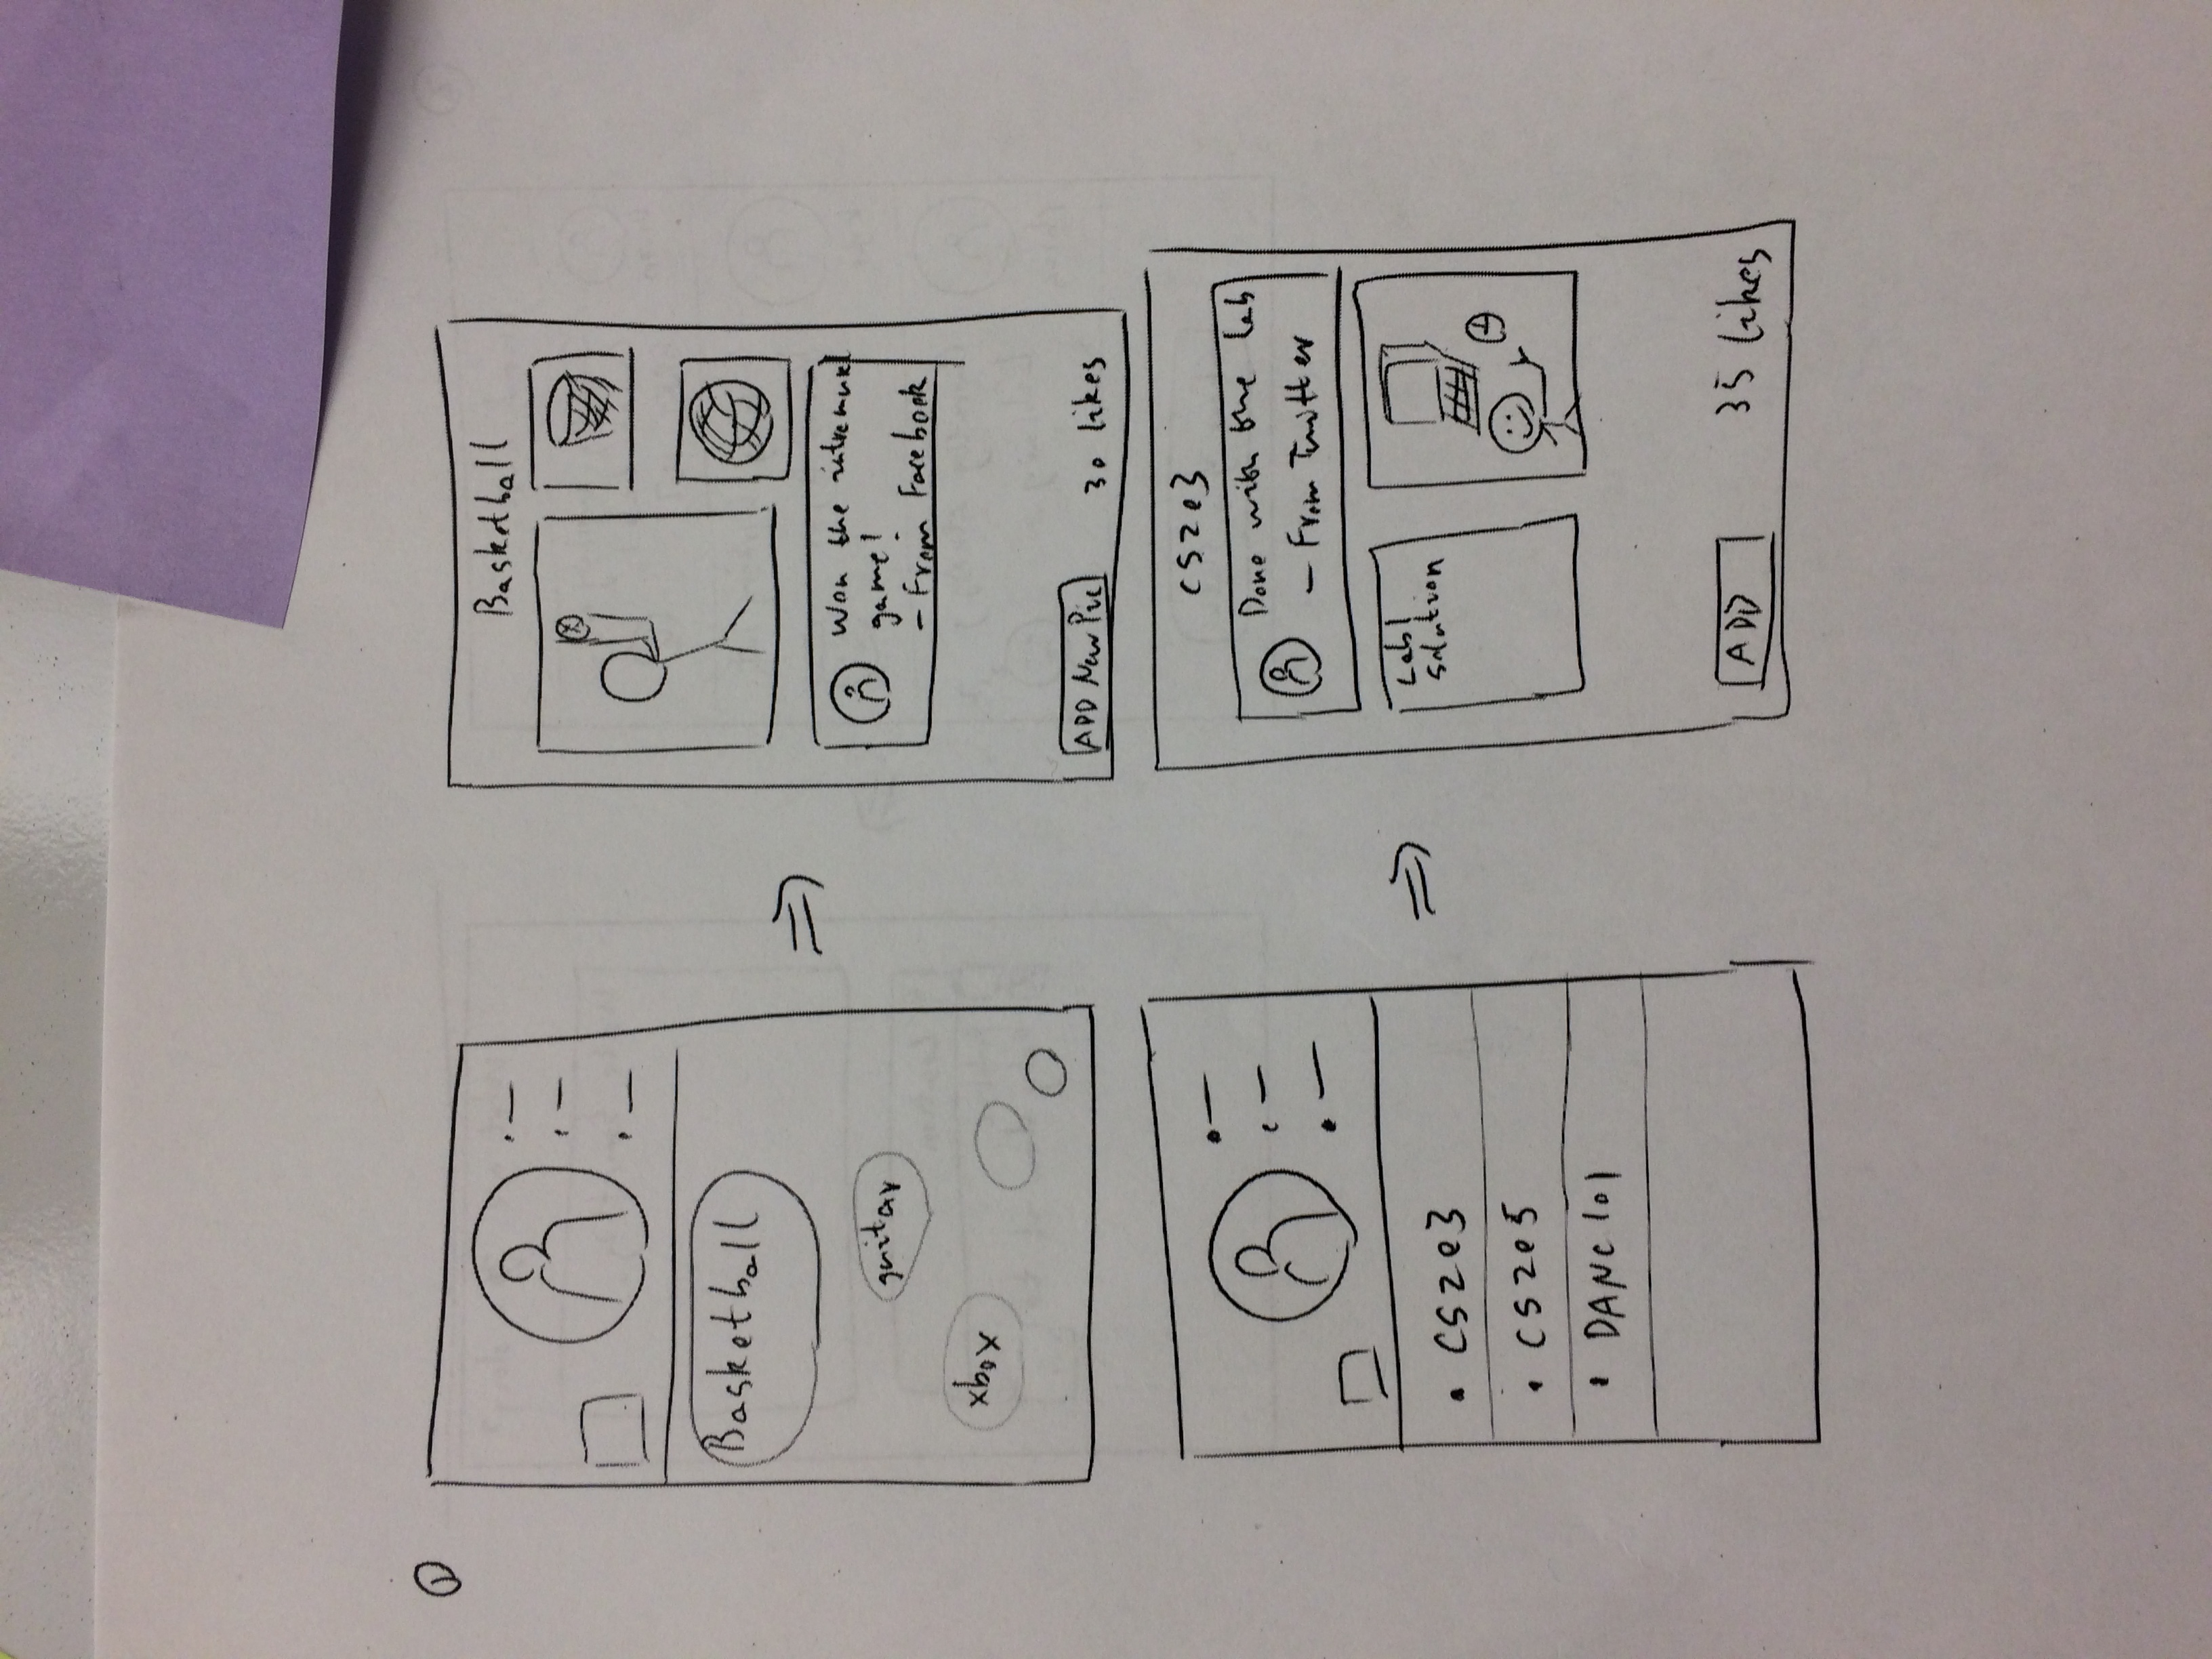 1
Basketball
guitar
xbox
Basketball
Won the intremural
game!
- From Facebook
ADD New Pic
30 likes
CS2e3
CS2e5
DANC 101
CS2e3
Done with the lab
- From Twitter
Lab1
solution
ADD
35 likes